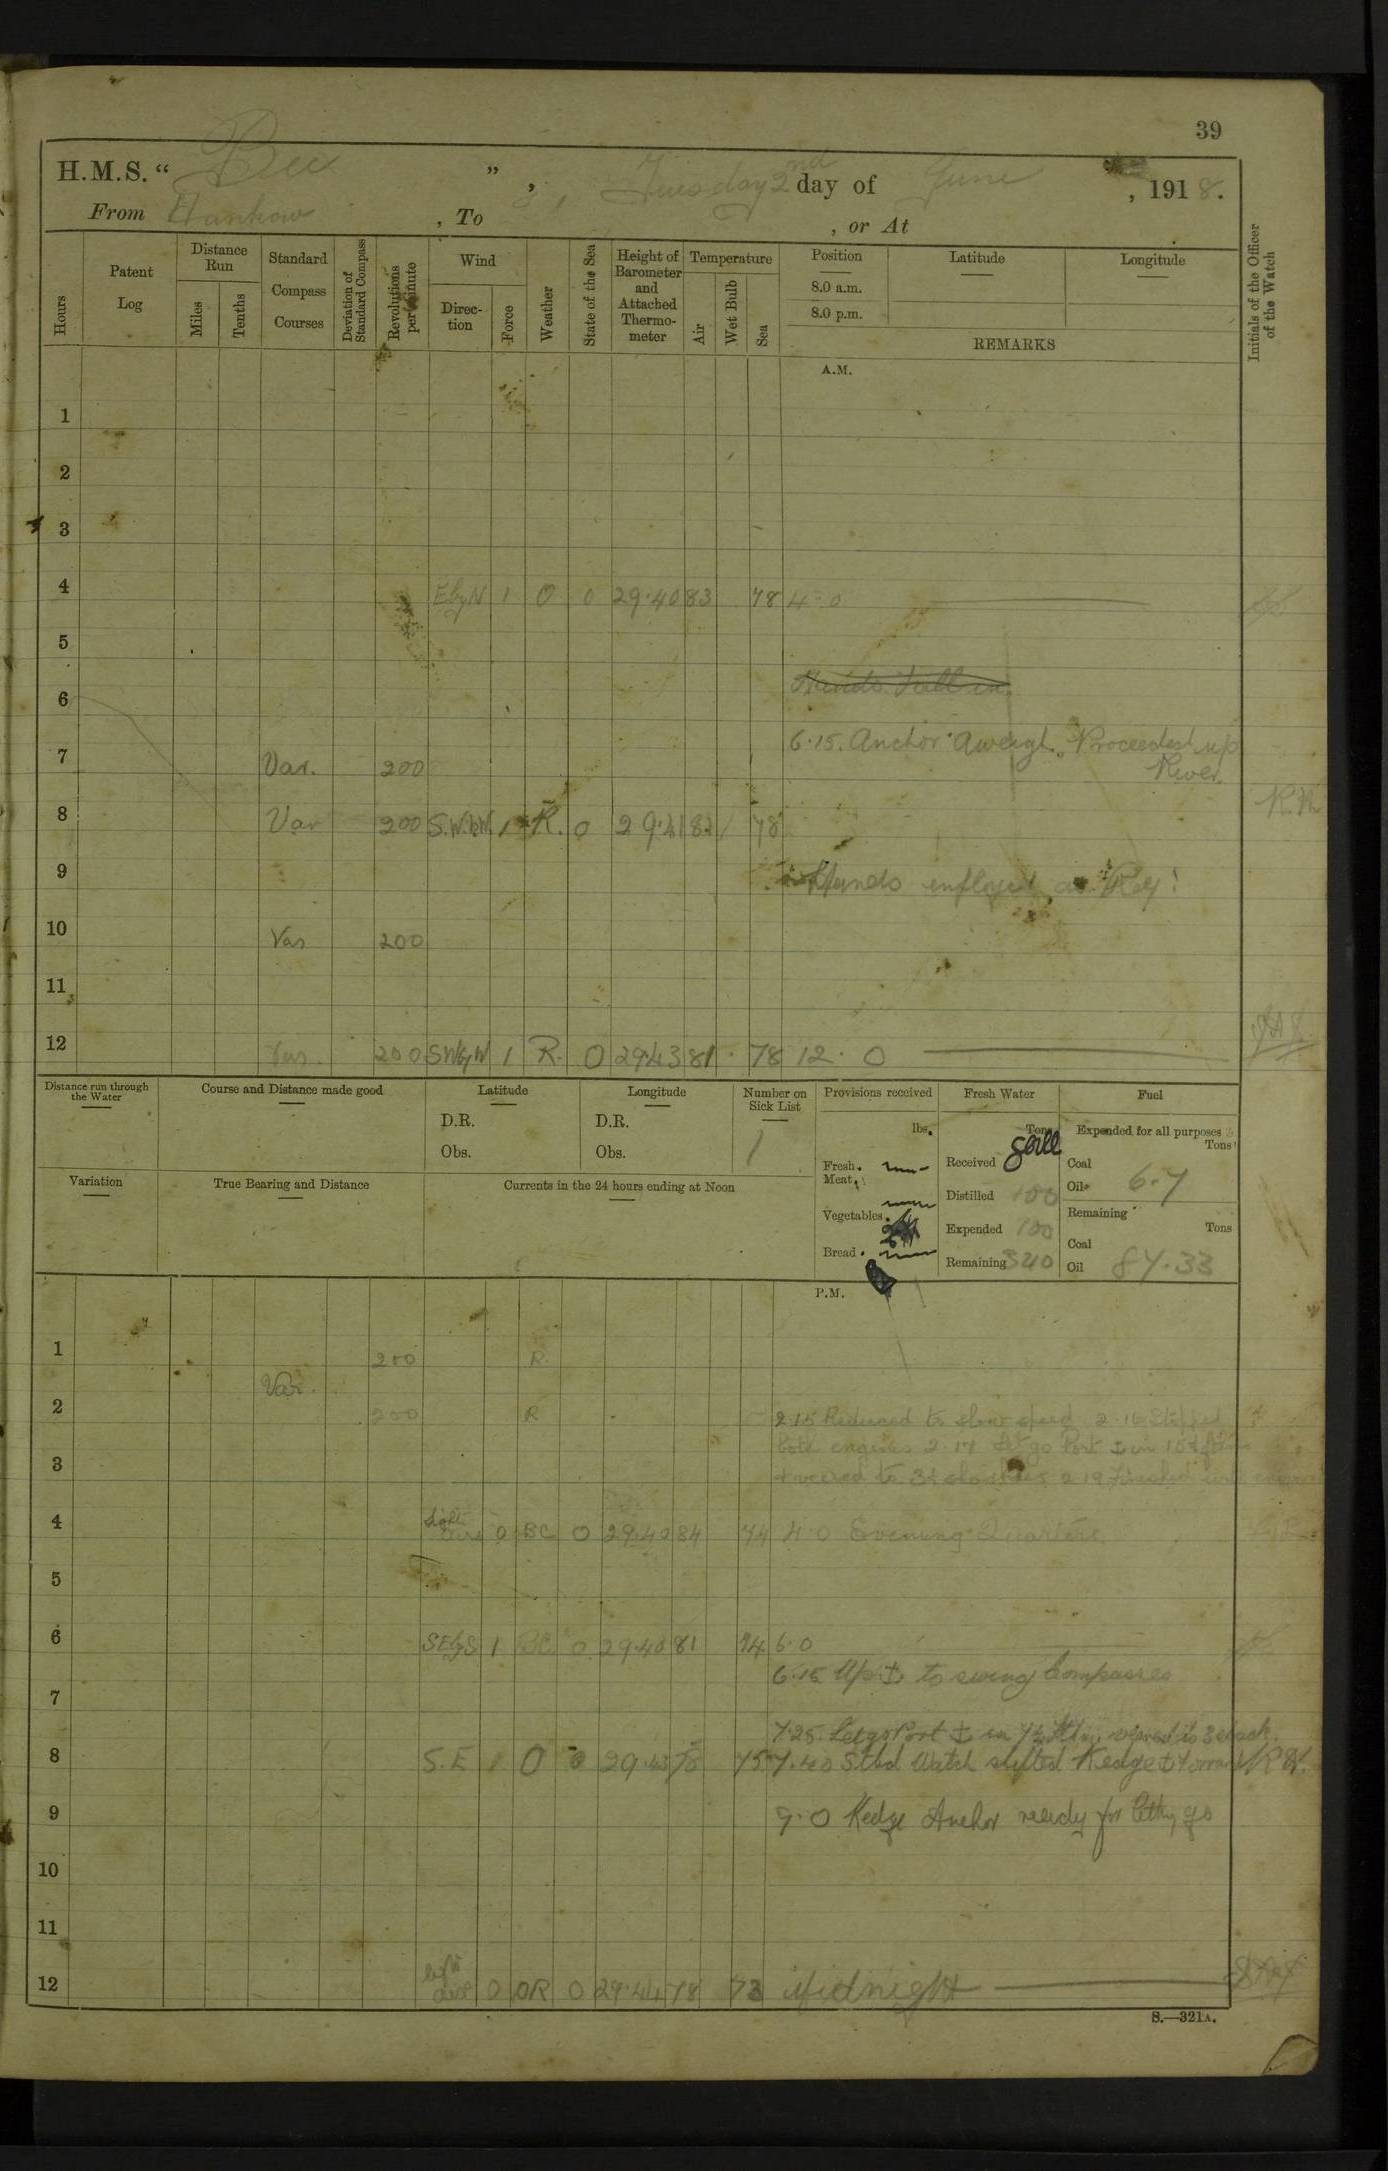 39
H.M.S. "Bee", Tuesday 2nd day of June, 1918.
From Hankow, To , or At
Hours
Patent Log
Distance Run
Miles
Tenths
Standard Compass Courses
Deviation of Standard Compass
Revolutions per minute
Wind
Direction
Force
Weather
State of the Sea
Height of Barometer and Attached Thermometer
Temperature
Air
Wet Bulb
Sea
Position
8.0 a.m.
8.0 p.m.
Latitude
Longitude
REMARKS
Initials of the Officer of the Watch
A.M.
1
2
3
4 EbyN 1 O 0 29.40 83 78 4.0
5
Hands fall in.
6
6.15. Anchor aweigh. Proceeded up
7 Var. 200 River.
8 Var 200 S.W.bW. 1 R. 0 29.41 82 78 R.M
9 Hands employed as Req!
10 Var 200
11
12 Var. 200 SWbyW 1 R. 0 29.43 81 78 12.0
Distance run through the Water
Course and Distance made good
Latitude
D.R.
Obs.
Longitude
D.R.
Obs.
Number on Sick List
1
Provisions received
lbs.
Fresh Meat
Vegetables
Bread
Fresh Water
Tons Gall
Received
Distilled 100
Expended 100
Remaining 340
Fuel
Expended for all purposes
Tons
Coal
Oil 6.7
Remaining
Tons
Coal
Oil 84.33
Variation
True Bearing and Distance
Currents in the 24 hours ending at Noon
P.M.
1 200 R.
Var.
2 200 R 2.15 Reduced to slow speed 2.16 Stopped
both engines 2.17 Let go Port ⚓ in
3 & veered to 3 shackles 2.19 Finished with engines
4 Light airs 0 BC 0 29.40 84 74 4.0 Evening Quarters
5
6 SEbyS 1 BC 0 29.40 81 74 6.0
6.15 Up ⚓ to swing Compasses
7
7.25. Let go Port ⚓ in 7½ ftm veered to 3 shack.
8 S.E 1 O 0 29.43 78 75 7.40 Stbd Watch shifted Kedge ⚓ forward
9 9.0 Kedge Anchor ready for letting go
10
11
12 light airs 0 OR 0 29.44 78 73 Midnight
S.—321A.